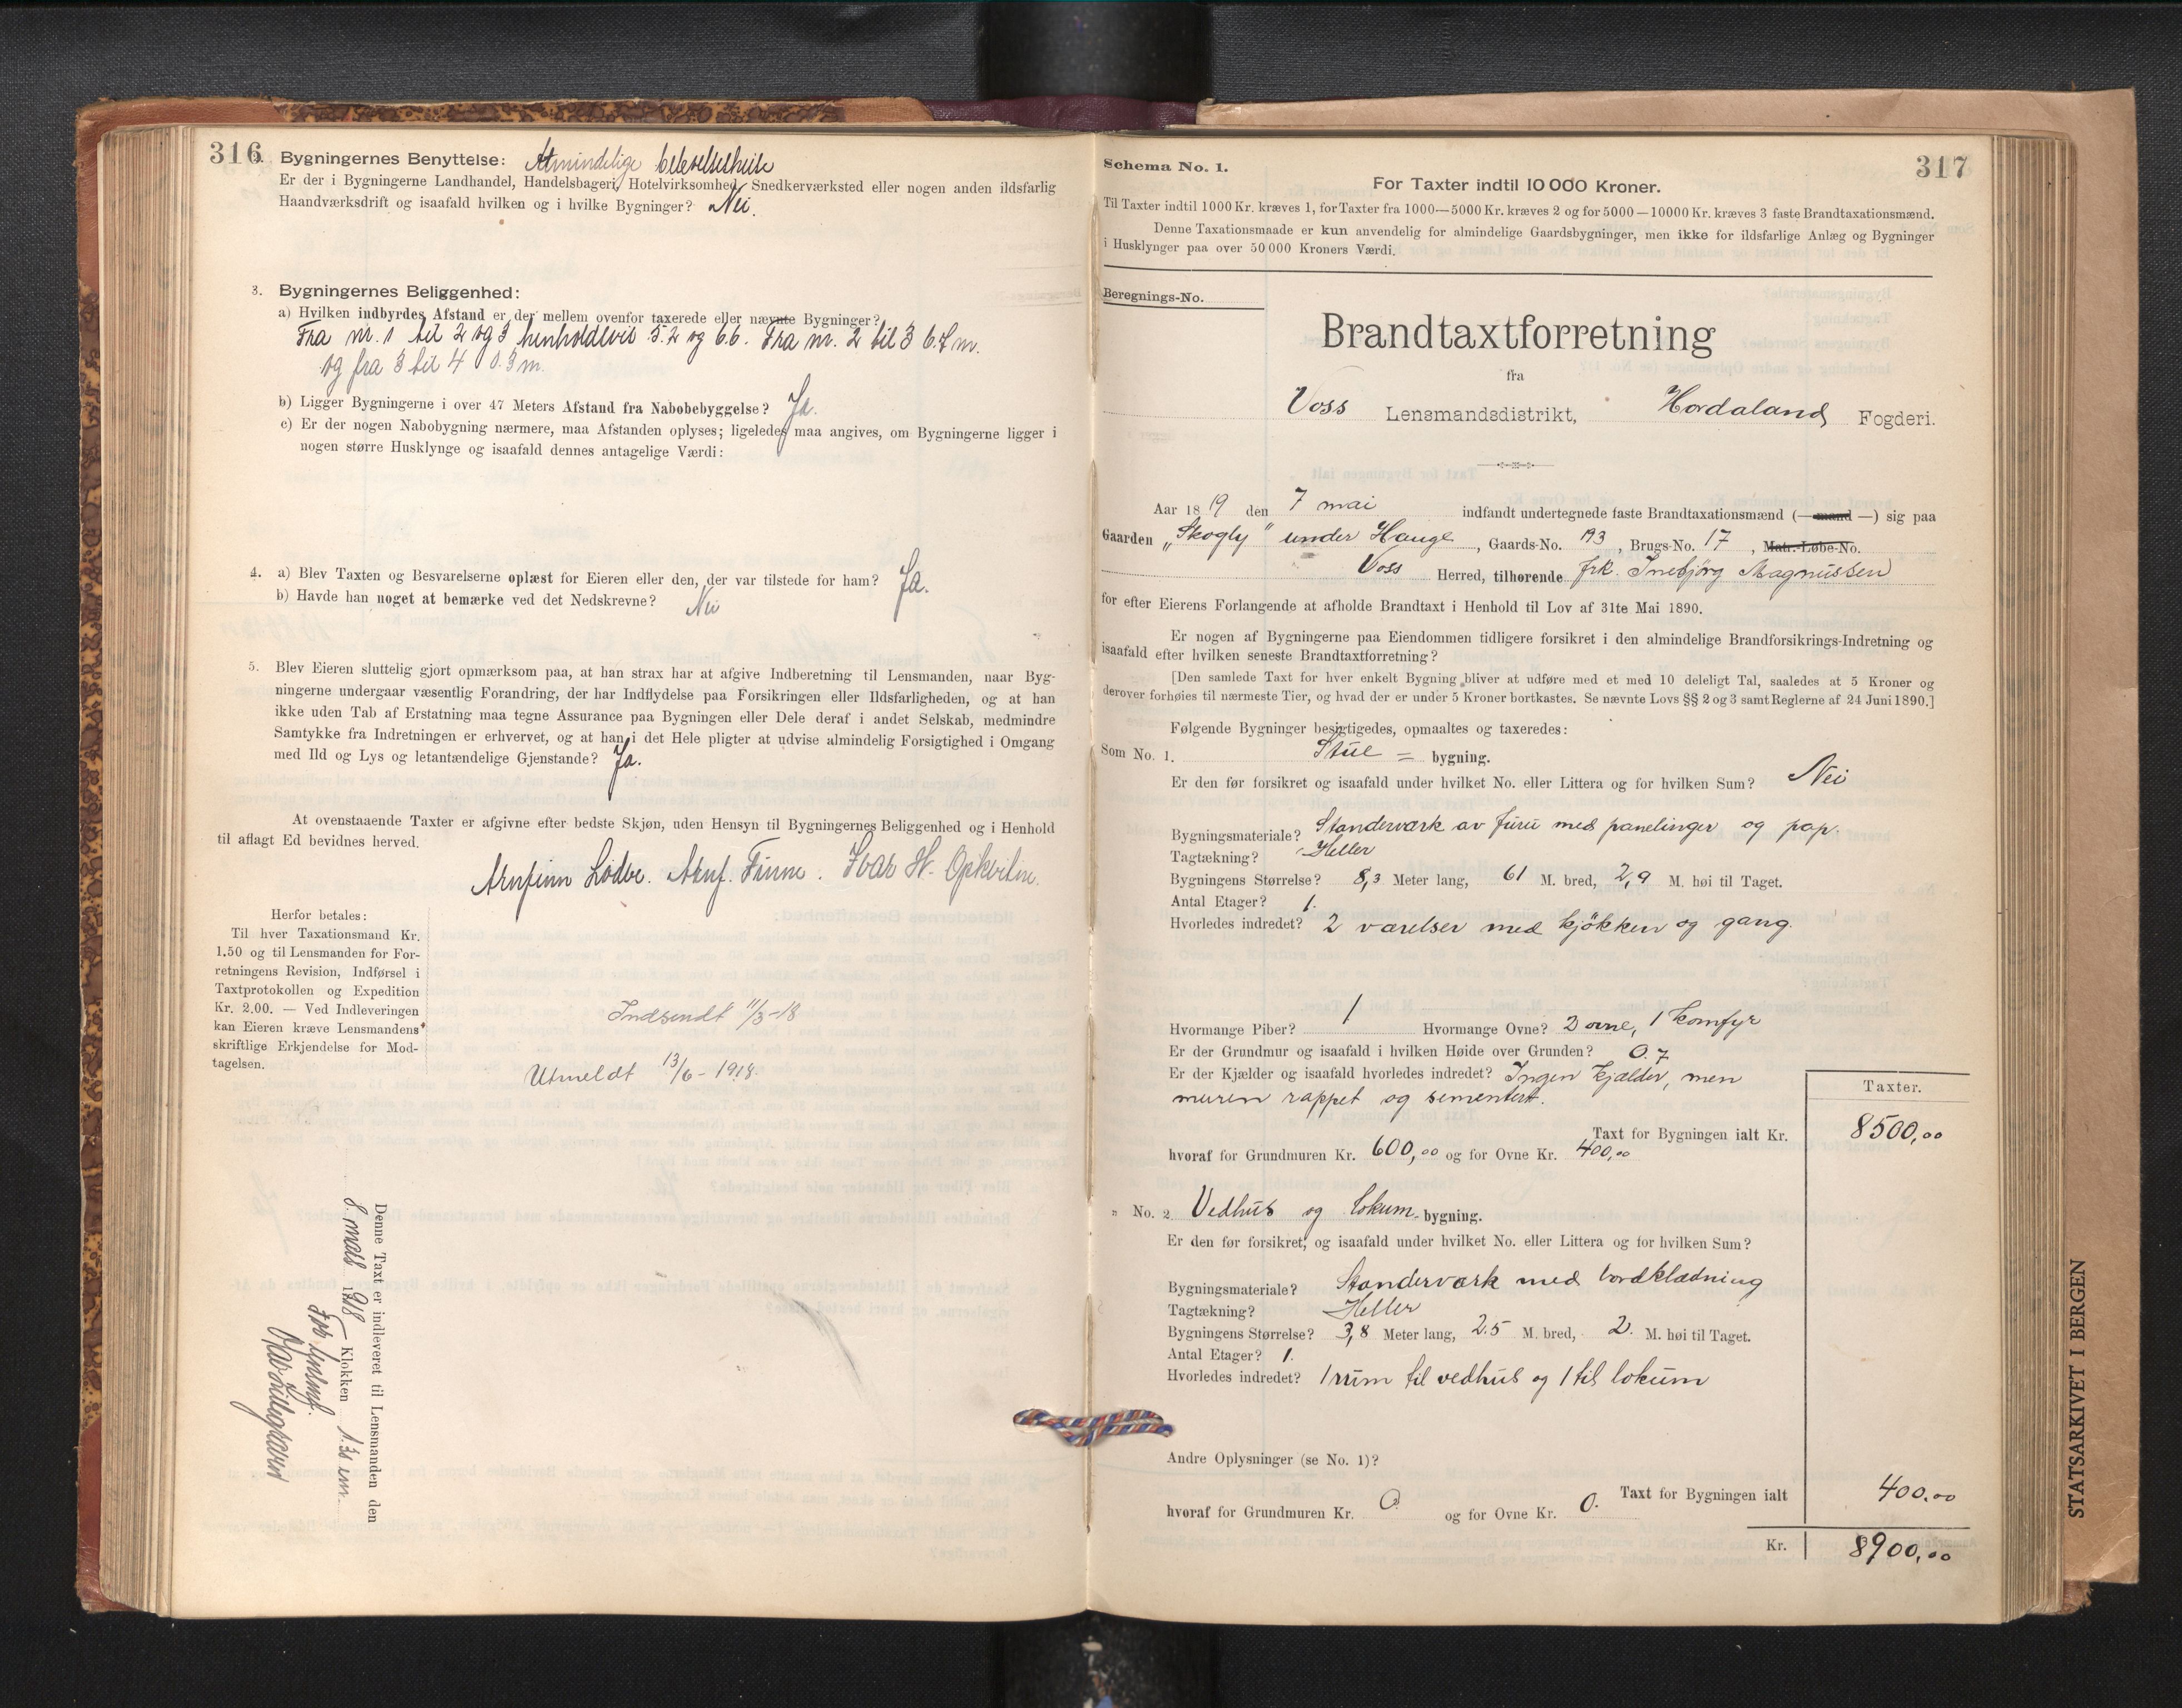 316
2. Bygningernes Benyttelse: Almindelige
Er der i Bygningerne Landhandel, Handelsbageri, Hotelvirksomhed, Snedkerværksted eller nogen anden ildsfarlig
Haandværksdrift og isaafald hvilken og i hvilke Bygninger? Nei.
3. Bygningernes Beliggenhed:
a) Hvilken indbyrdes Afstand er der mellem ovenfor taxerede eller nævnte Bygninger?
Fra nr. 1 til 2 og 3 henholdsvis 5.2 og 6.6. Fra nr. 2 til 3 6.7 m.
og fra 3 til 4 0.3 m.
b) Ligger Bygningerne i over 47 Meters Afstand fra Nabobebyggelse? Ja.
c) Er der nogen Nabobygning nærmere, maa Afstanden oplyses; ligeledes maa angives, om Bygningerne ligger i
nogen større Husklynge og isaafald dennes antagelige Værdi:
4. a) Blev Taxten og Besvarelserne oplæst for Eieren eller den, der var tilstede for ham? Ja.
b) Havde han noget at bemærke ved det Nedskrevne? Nei
5. Blev Eieren sluttelig gjort opmærksom paa, at han strax har at afgive Indberetning til Lensmanden, naar Byg-
ningerne undergaar væsentlig Forandring, der har Indflydelse paa Forsikringen eller Ildsfarligheden, og at han
ikke uden Tab af Erstatning maa tegne Assurance paa Bygningen eller Dele deraf i andet Selskab, medmindre
Samtykke fra Indretningen er erhvervet, og at han i det Hele pligter at udvise almindelig Forsigtighed i Omgang
med Ild og Lys og letantændelige Gjenstande? Ja.
At ovenstaaende Taxter er afgivne efter bedste Skjøn, uden Hensyn til Bygningernes Beliggenhed og i Henhold
til aflagt Ed bevidnes herved.
Arnfinn Lødve. Arnf. Finne. Ivar H. Opkvitne.
Herfor betales:
Til hver Taxationsmand Kr.
1.50 og til Lensmanden for For-
retningens Revision, Indførsel i
Taxtprotokollen og Expedition
Kr. 2.00. — Ved Indleveringen
kan Eieren kræve Lensmandens
skriftlige Erkjendelse for Mod-
tagelsen.
Indsendt 11/3-18
Utmeldt 13/6-1918.
Denne Taxt er indleveret til Lensmanden den
8. mars 1918 Klokken 1.30 em.
317
Schema No. 1.
For Taxter indtil 10 000 Kroner.
Til Taxter indtil 1000 Kr. kræves 1, for Taxter fra 1000—5000 Kr. kræves 2 og for 5000—10000 Kr. kræves 3 faste Brandtaxationsmænd.
Denne Taxationsmaade er kun anvendelig for almindelige Gaardsbygninger, men ikke for ildsfarlige Anlæg og Bygninger
i Husklynger paa over 50 000 Kroners Værdi.
Beregnings-No.
Brandtaxtforretning
fra
Voss Lensmandsdistrikt, Hordaland Fogderi.
Aar 1819 den 7 mai indfandt undertegnede faste Brandtaxationsmænd (— mand —) sig paa
Gaarden „Skogly“ under Hauge, Gaards-No. 43, Brugs-No. 17, Matr.-Løbe-No.
Voss Herred, tilhørende frk. Ingebjørg Magnussen
for efter Eierens Forlangende at afholde Brandtaxt i Henhold til Lov af 31te Mai 1890.
Er nogen af Bygningerne paa Eiendommen tidligere forsikret i den almindelige Brandforsikrings-Indretning og
isaafald efter hvilken seneste Brandtaxtforretning?
[Den samlede Taxt for hver enkelt Bygning bliver at udføre med et med 10 deleligt Tal, saaledes at 5 Kroner og
derover forhøies til nærmeste Tier, og hvad der er under 5 Kroner bortkastes. Se nævnte Lovs §§ 2 og 3 samt Reglerne af 24 Juni 1890.]
Følgende Bygninger besigtigedes, opmaaltes og taxeredes:
Som No. 1. Stue = bygning.
Er den før forsikret og isaafald under hvilket No. eller Littera og for hvilken Sum? Nei
Bygningsmateriale? Standerværk av furu med panelinger og pap.
Tagtækning? Heller
Bygningens Størrelse? 8,3 Meter lang, 61 M. bred, 2,9 M. høi til Taget.
Antal Etager? 1.
Hvorledes indredet? 2 værelser med kjøkken og gang.
Hvormange Piber? 1 Hvormange Ovne? 2 ovne, 1 komfyr
Er der Grundmur og isaafald i hvilken Høide over Grunden? 0.7
Er der Kjælder og isaafald hvorledes indredet? Ingen kjælder, men
muren rappet og sementert.
Taxter.
Taxt for Bygningen ialt Kr. 8500,00
hvoraf for Grundmuren Kr. 600,00 og for Ovne Kr. 400,00
„ No. 2 Vedhus og lokum bygning.
Er den før forsikret, og isaafald under hvilket No. eller Littera og for hvilken Sum?
Bygningsmateriale? Standerværk med bordklædning
Tagtækning? Heller
Bygningens Størrelse? 3,8 Meter lang, 2.5 M. bred, 2. M. høi til Taget.
Antal Etager? 1.
Hvorledes indredet? 1 rum til vedhus og 1 til lokum
Andre Oplysninger (se No. 1)?
Taxt for Bygningen ialt 400,00
hvoraf for Grundmuren Kr. 0. og for Ovne Kr. 0.
Kr. 8900,00
STATSARKIVET I BERGEN